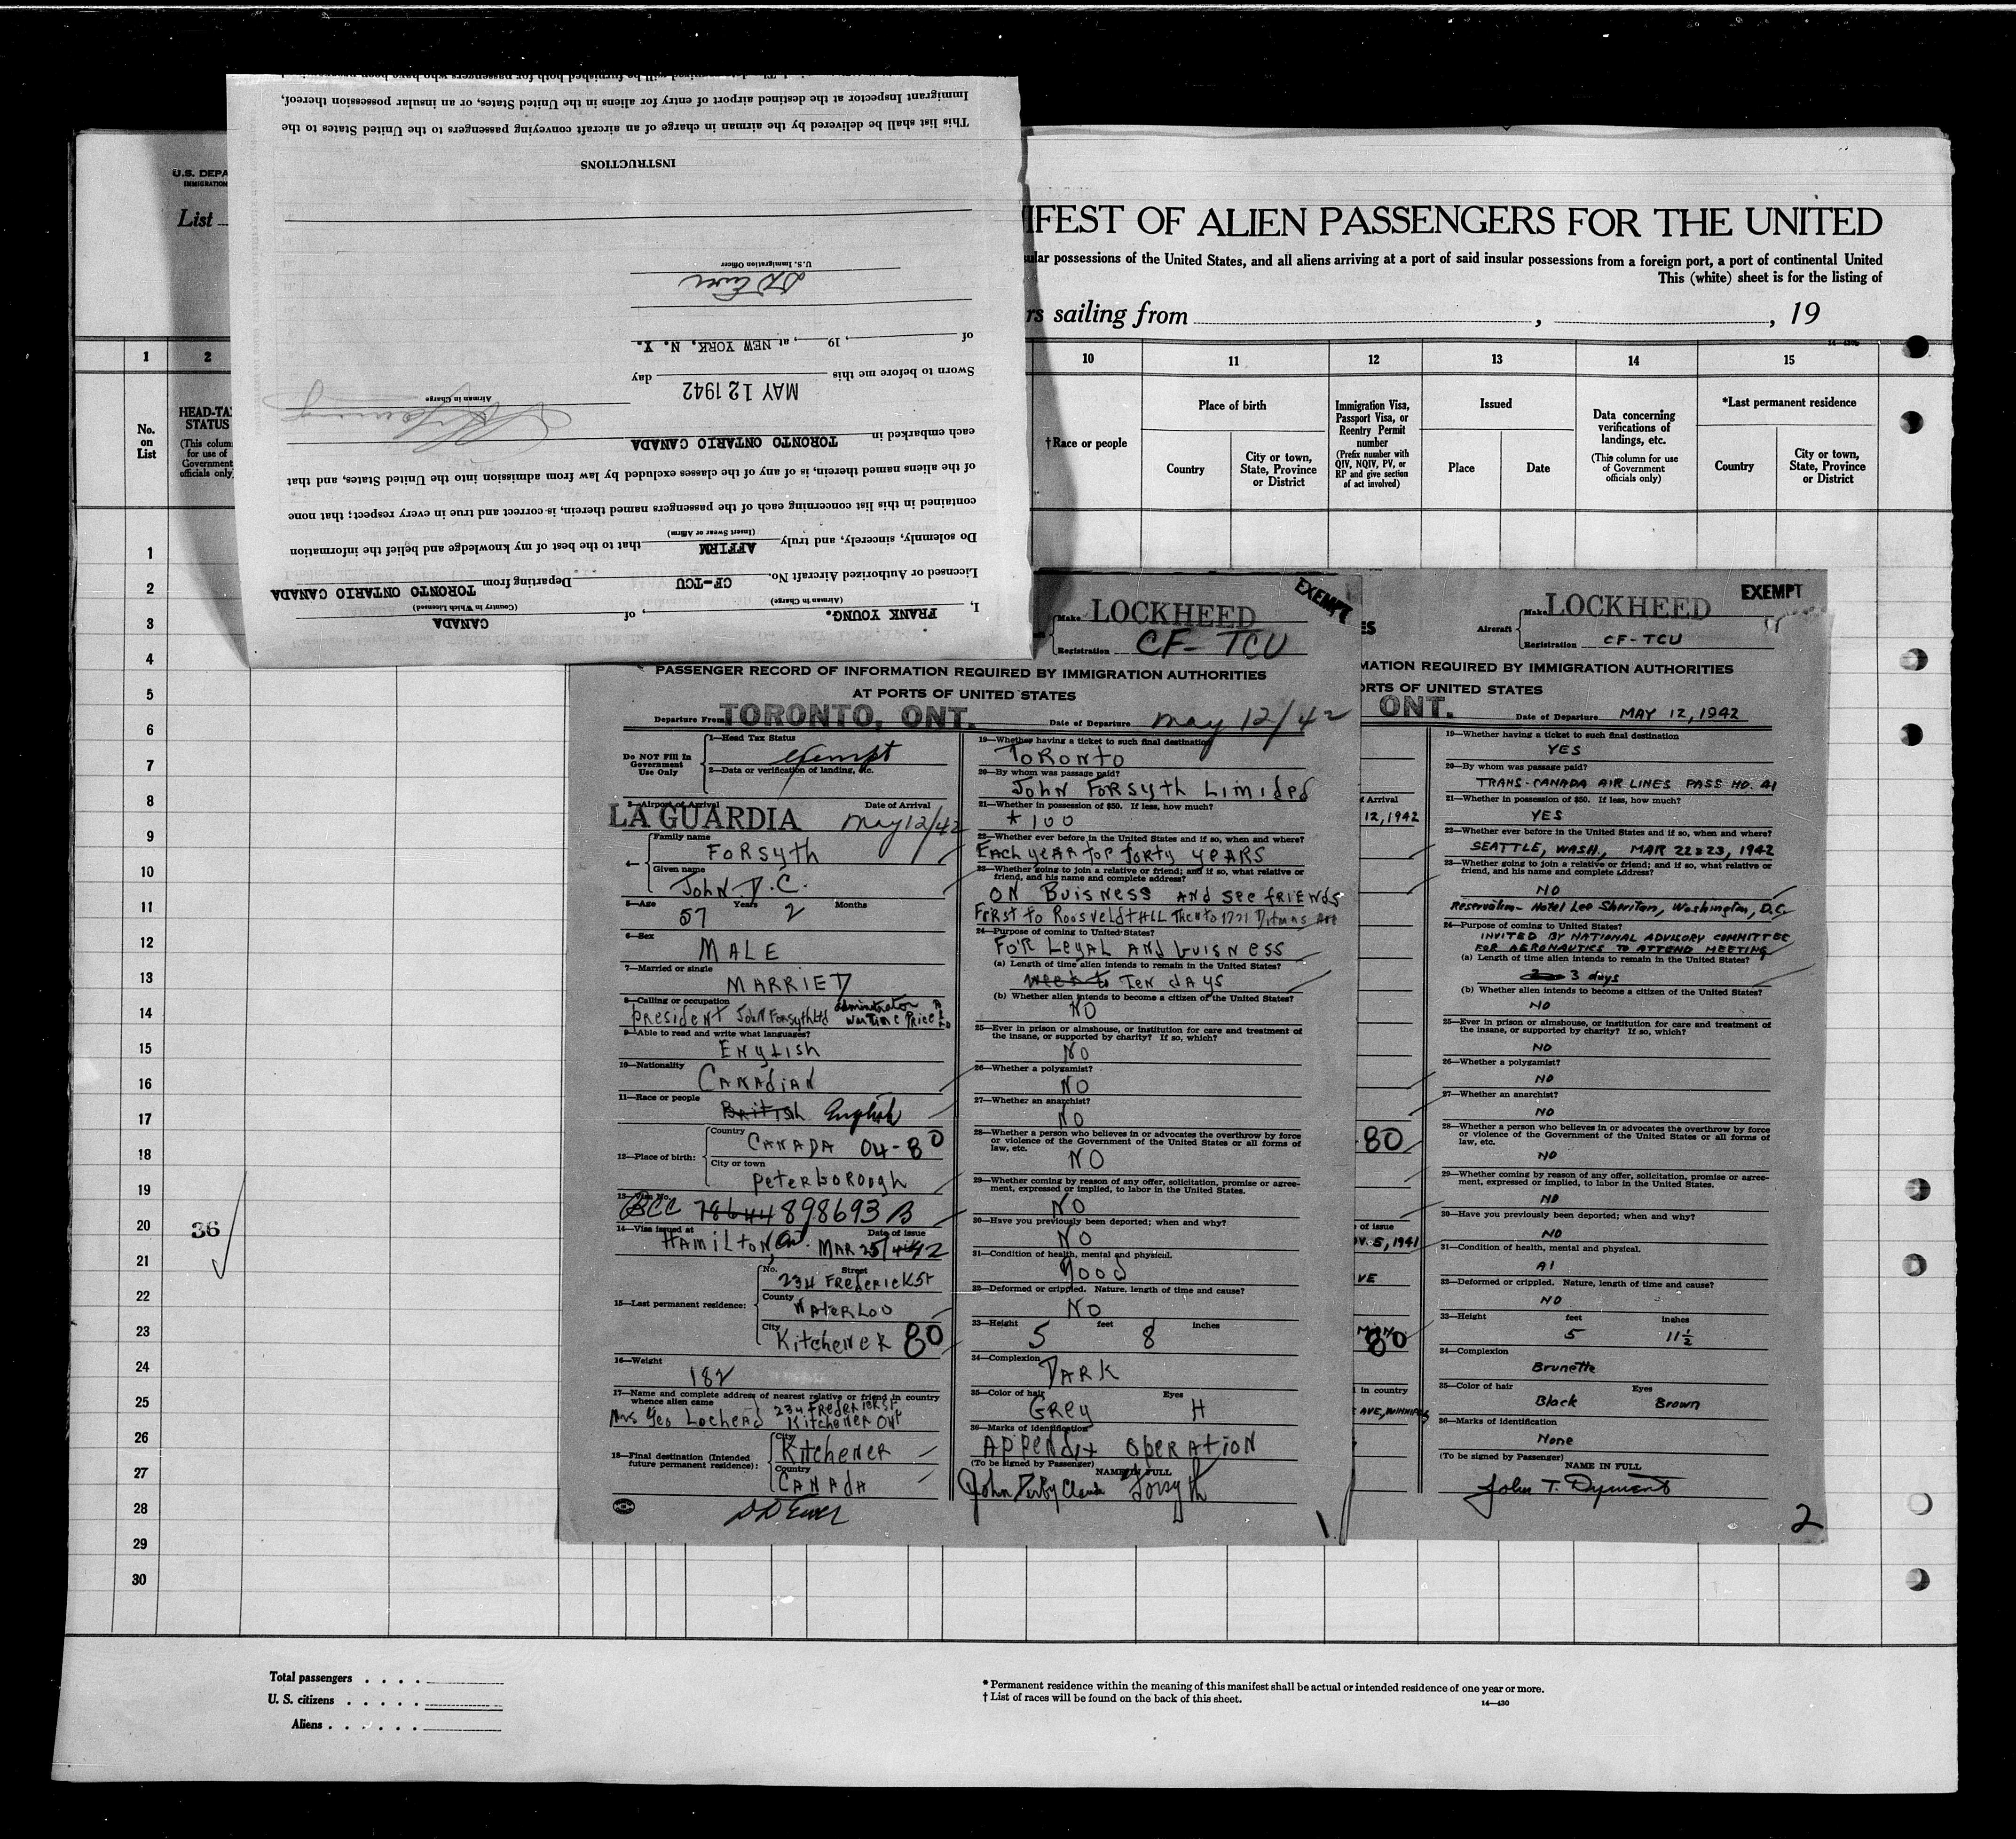 U.S. DEPA
IMMIGRATION
List
IFEST OF ALIEN PASSENGERS FOR THE UNITED
ular possessions of the United States, and all aliens arriving at a port of said insular possessions from a foreign port, a port of continental United
This (white) sheet is for the listing of
rs sailing from , , 19
1
2
10
11
12
13
14
15
No. on List
HEAD-TAX STATUS
(This column for use of Government officials only)
†Race or people
Place of birth
Country
City or town, State, Province or District
Immigration Visa, Passport Visa, or Reentry Permit number
(Prefix number with QIV, NQIV, PV, or RP and give section of act involved)
Issued
Place
Date
Data concerning verifications of landings, etc.
(This column for use of Government officials only)
*Last permanent residence
Country
City or town, State, Province or District
1
2
3
4
5
6
7
8
9
10
11
12
13
14
15
16
17
18
19
20
36
21
22
23
24
25
26
27
28
29
30
Total passengers . . . .
U. S. citizens . . . . .
Aliens . . . . . .
* Permanent residence within the meaning of this manifest shall be actual or intended residence of one year or more.
† List of races will be found on the back of this sheet.
14—430
I, FRANK YOUNG. , of CANADA
(Airman in Charge)
(Country in Which Licensed)
Licensed or Authorized Aircraft No. CF-TCU Departing from TORONTO ONTARIO CANADA
Do solemnly, sincerely, and truly AFFIRM that to the best of my knowledge and belief the information
(Insert Swear or Affirm)
contained in this list concerning each of the passengers named therein, is correct and true in every respect; that none
of the aliens named therein, is of any of the classes excluded by law from admission into the United States, and that
each embarked in TORONTO ONTARIO CANADA
Airman in Charge
MAY 12 1942
Sworn to before me this day
of , 19 , at NEW YORK, N. Y.
U.S. Immigration Officer
INSTRUCTIONS
This list shall be delivered by the airman in charge of an aircraft conveying passengers to the United States to the
Immigrant Inspector at the destined airport of entry for aliens in the United States, or an insular possession thereof,
EXEMPT
Make LOCKHEED
Registration CF-TCU
PASSENGER RECORD OF INFORMATION REQUIRED BY IMMIGRATION AUTHORITIES
AT PORTS OF UNITED STATES
Departure From TORONTO, ONT. Date of Departure may 12/42
Do NOT Fill In Government Use Only
1—Head Tax Status
exempt
2—Data or verification of landing, etc.
3—Airport of Arrival Date of Arrival
LA GUARDIA may 12/42
4—
Family name
Forsyth
Given name
John D.C.
5—Age 57 Years 2 Months
6—Sex
MALE
7—Married or single
MARRIED
8—Calling or occupation
president John Forsyth Ltd administrator wartime Price
9—Able to read and write what languages?
English
10—Nationality
Canadian
11—Race or people
British English
12—Place of birth:
Country
CANADA 04-80
City or town
peterborough
13—Visa No.
BCC 78644 898693 B
14—Visa issued at Date of issue
Hamilton, Ont. MAR 25/42
15—Last permanent residence:
No. Street
234 Frederick St
County
Waterloo
City
Kitchener 80
16—Weight
182
17—Name and complete address of nearest relative or friend in country whence alien came
Mrs Geo Lochead 234 Frederick St Kitchener Ont
18—Final destination (Intended future permanent residence):
City
Kitchener
Country
CANADA
19—Whether having a ticket to such final destination
Toronto
20—By whom was passage paid?
John Forsyth Limided
21—Whether in possession of $50. If less, how much?
100
22—Whether ever before in the United States and if so, when and where?
Each year for forty years
23—Whether going to join a relative or friend; and if so, what relative or friend, and his name and complete address?
ON Buisness and see friends
First to Roosveldt Htl Then to 1721 Ditmas Ave
24—Purpose of coming to United States?
For Legal and buisness
(a) Length of time alien intends to remain in the United States?
Ten days
(b) Whether alien intends to become a citizen of the United States?
NO
25—Ever in prison or almshouse, or institution for care and treatment of the insane, or supported by charity? If so, which?
NO
26—Whether a polygamist?
NO
27—Whether an anarchist?
NO
28—Whether a person who believes in or advocates the overthrow by force or violence of the Government of the United States or all forms of law, etc.
NO
29—Whether coming by reason of any offer, solicitation, promise or agreement, expressed or implied, to labor in the United States.
NO
30—Have you previously been deported; when and why?
NO
31—Condition of health, mental and physical.
good
32—Deformed or crippled. Nature, length of time and cause?
No
33—Height 5 feet 8 inches
34—Complexion
DARK
35—Color of hair Eyes
Grey H
36—Marks of identification
Appendix operation
(To be signed by Passenger)
NAME IN FULL
John Derby Claude Forsyth
1
EXEMPT
Aircraft
Make LOCKHEED
Registration CF-TCU
MATION REQUIRED BY IMMIGRATION AUTHORITIES
ORTS OF UNITED STATES
ONT. Date of Departure MAY 12, 1942
f Arrival
12, 1942
80
of issue
OV. 5, 1941
VE
80
in country
AVE, WINNIPEG
19—Whether having a ticket to such final destination
YES
20—By whom was passage paid?
TRANS-CANADA AIR LINES PASS NO. A1
21—Whether in possession of $50. If less, how much?
YES
22—Whether ever before in the United States and if so, when and where?
SEATTLE, WASH., MAR 22 & 23, 1942
23—Whether going to join a relative or friend; and if so, what relative or friend, and his name and complete address?
NO
Reservation - Hotel Lee Sheriton, Washington, D.C.
24—Purpose of coming to United States?
INVITED BY NATIONAL ADVISORY COMMITTEE
FOR AERONAUTICS TO ATTEND MEETING
(a) Length of time alien intends to remain in the United States?
3 days
(b) Whether alien intends to become a citizen of the United States?
NO
25—Ever in prison or almshouse, or institution for care and treatment of the insane, or supported by charity? If so, which?
NO
26—Whether a polygamist?
NO
27—Whether an anarchist?
NO
28—Whether a person who believes in or advocates the overthrow by force or violence of the Government of the United States or all forms of law, etc.
NO
29—Whether coming by reason of any offer, solicitation, promise or agreement, expressed or implied, to labor in the United States.
NO
30—Have you previously been deported; when and why?
NO
31—Condition of health, mental and physical.
A1
32—Deformed or crippled. Nature, length of time and cause?
NO
33—Height 5 feet 11½ inches
34—Complexion
Brunette
35—Color of hair Eyes
Black Brown
36—Marks of identification
None
(To be signed by Passenger)
NAME IN FULL
John T. Dyment
2